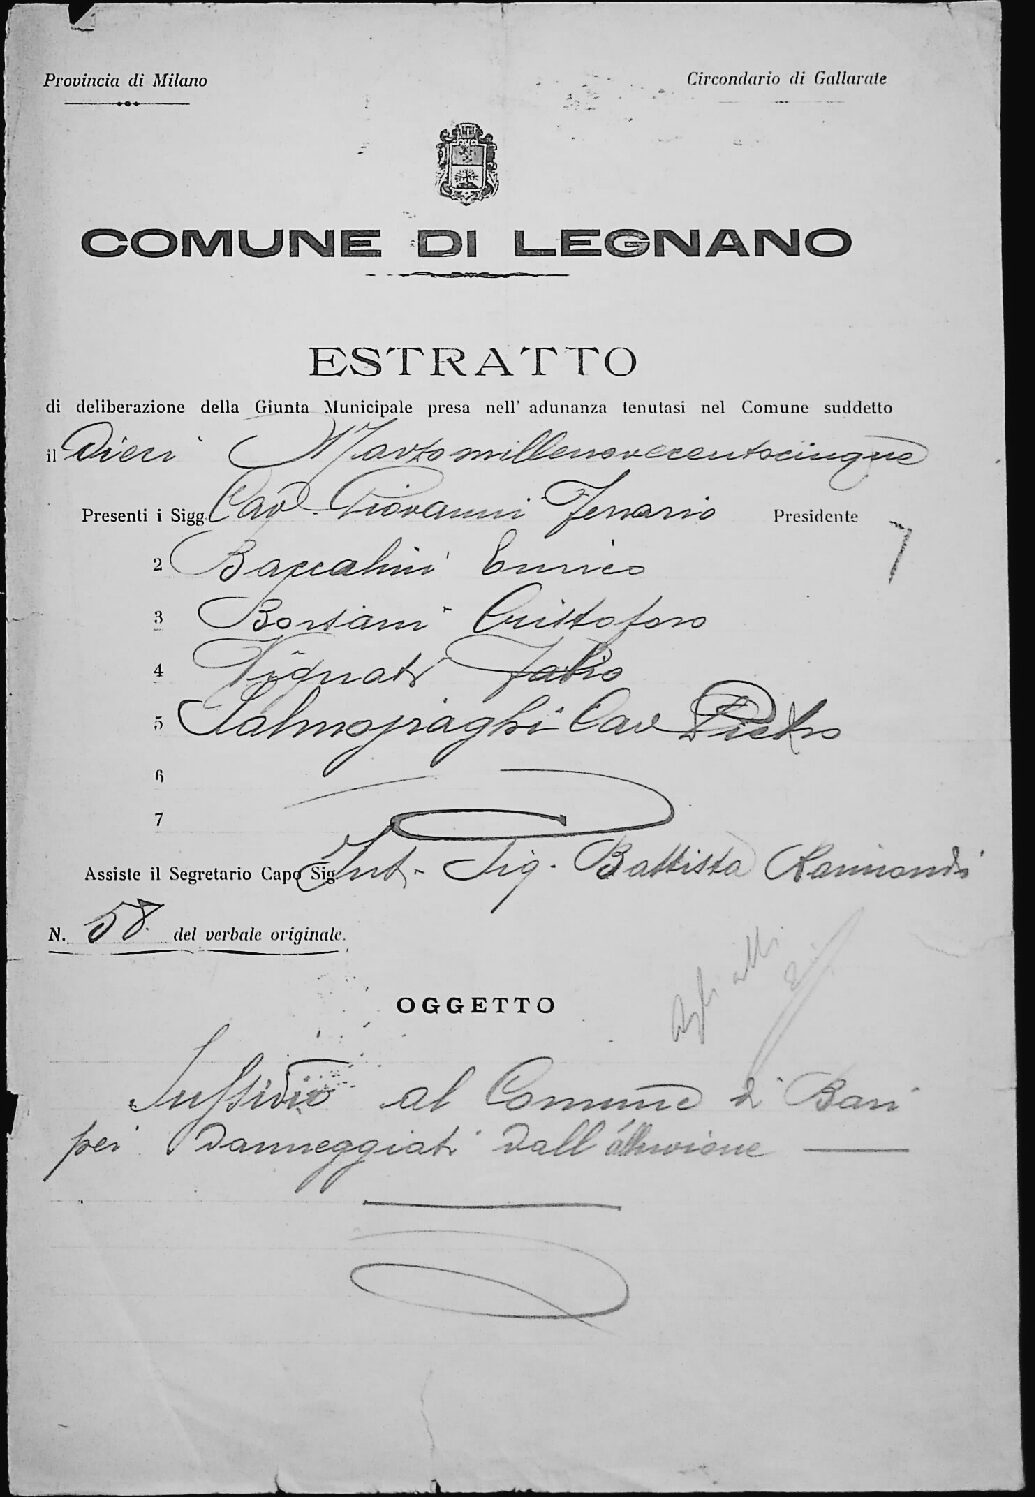 Provincia di Milano
Circondario di Gallarate
COMUNE DI LEGNANO
ESTRATTO
di deliberazione della Giunta Municipale presa nell' adunanza tenutasi nel Comune suddetto
il Dieci Marzo millenovecentocinque
Presenti i Sigg. Cav. Giovanni Ferrario Presidente
2 Baccalini Enrico
3 Borsani Cristoforo
4 Vignati Fabio
5 Salmojraghi Cav Pietro
6
7
Assiste il Segretario Capo Sig. Int. Sig. Battista Raimondi
N. 58 del verbale originale.
Agli atti
OGGETTO
Sussidio al Comune di Bari
pei danneggiati dall'alluvione